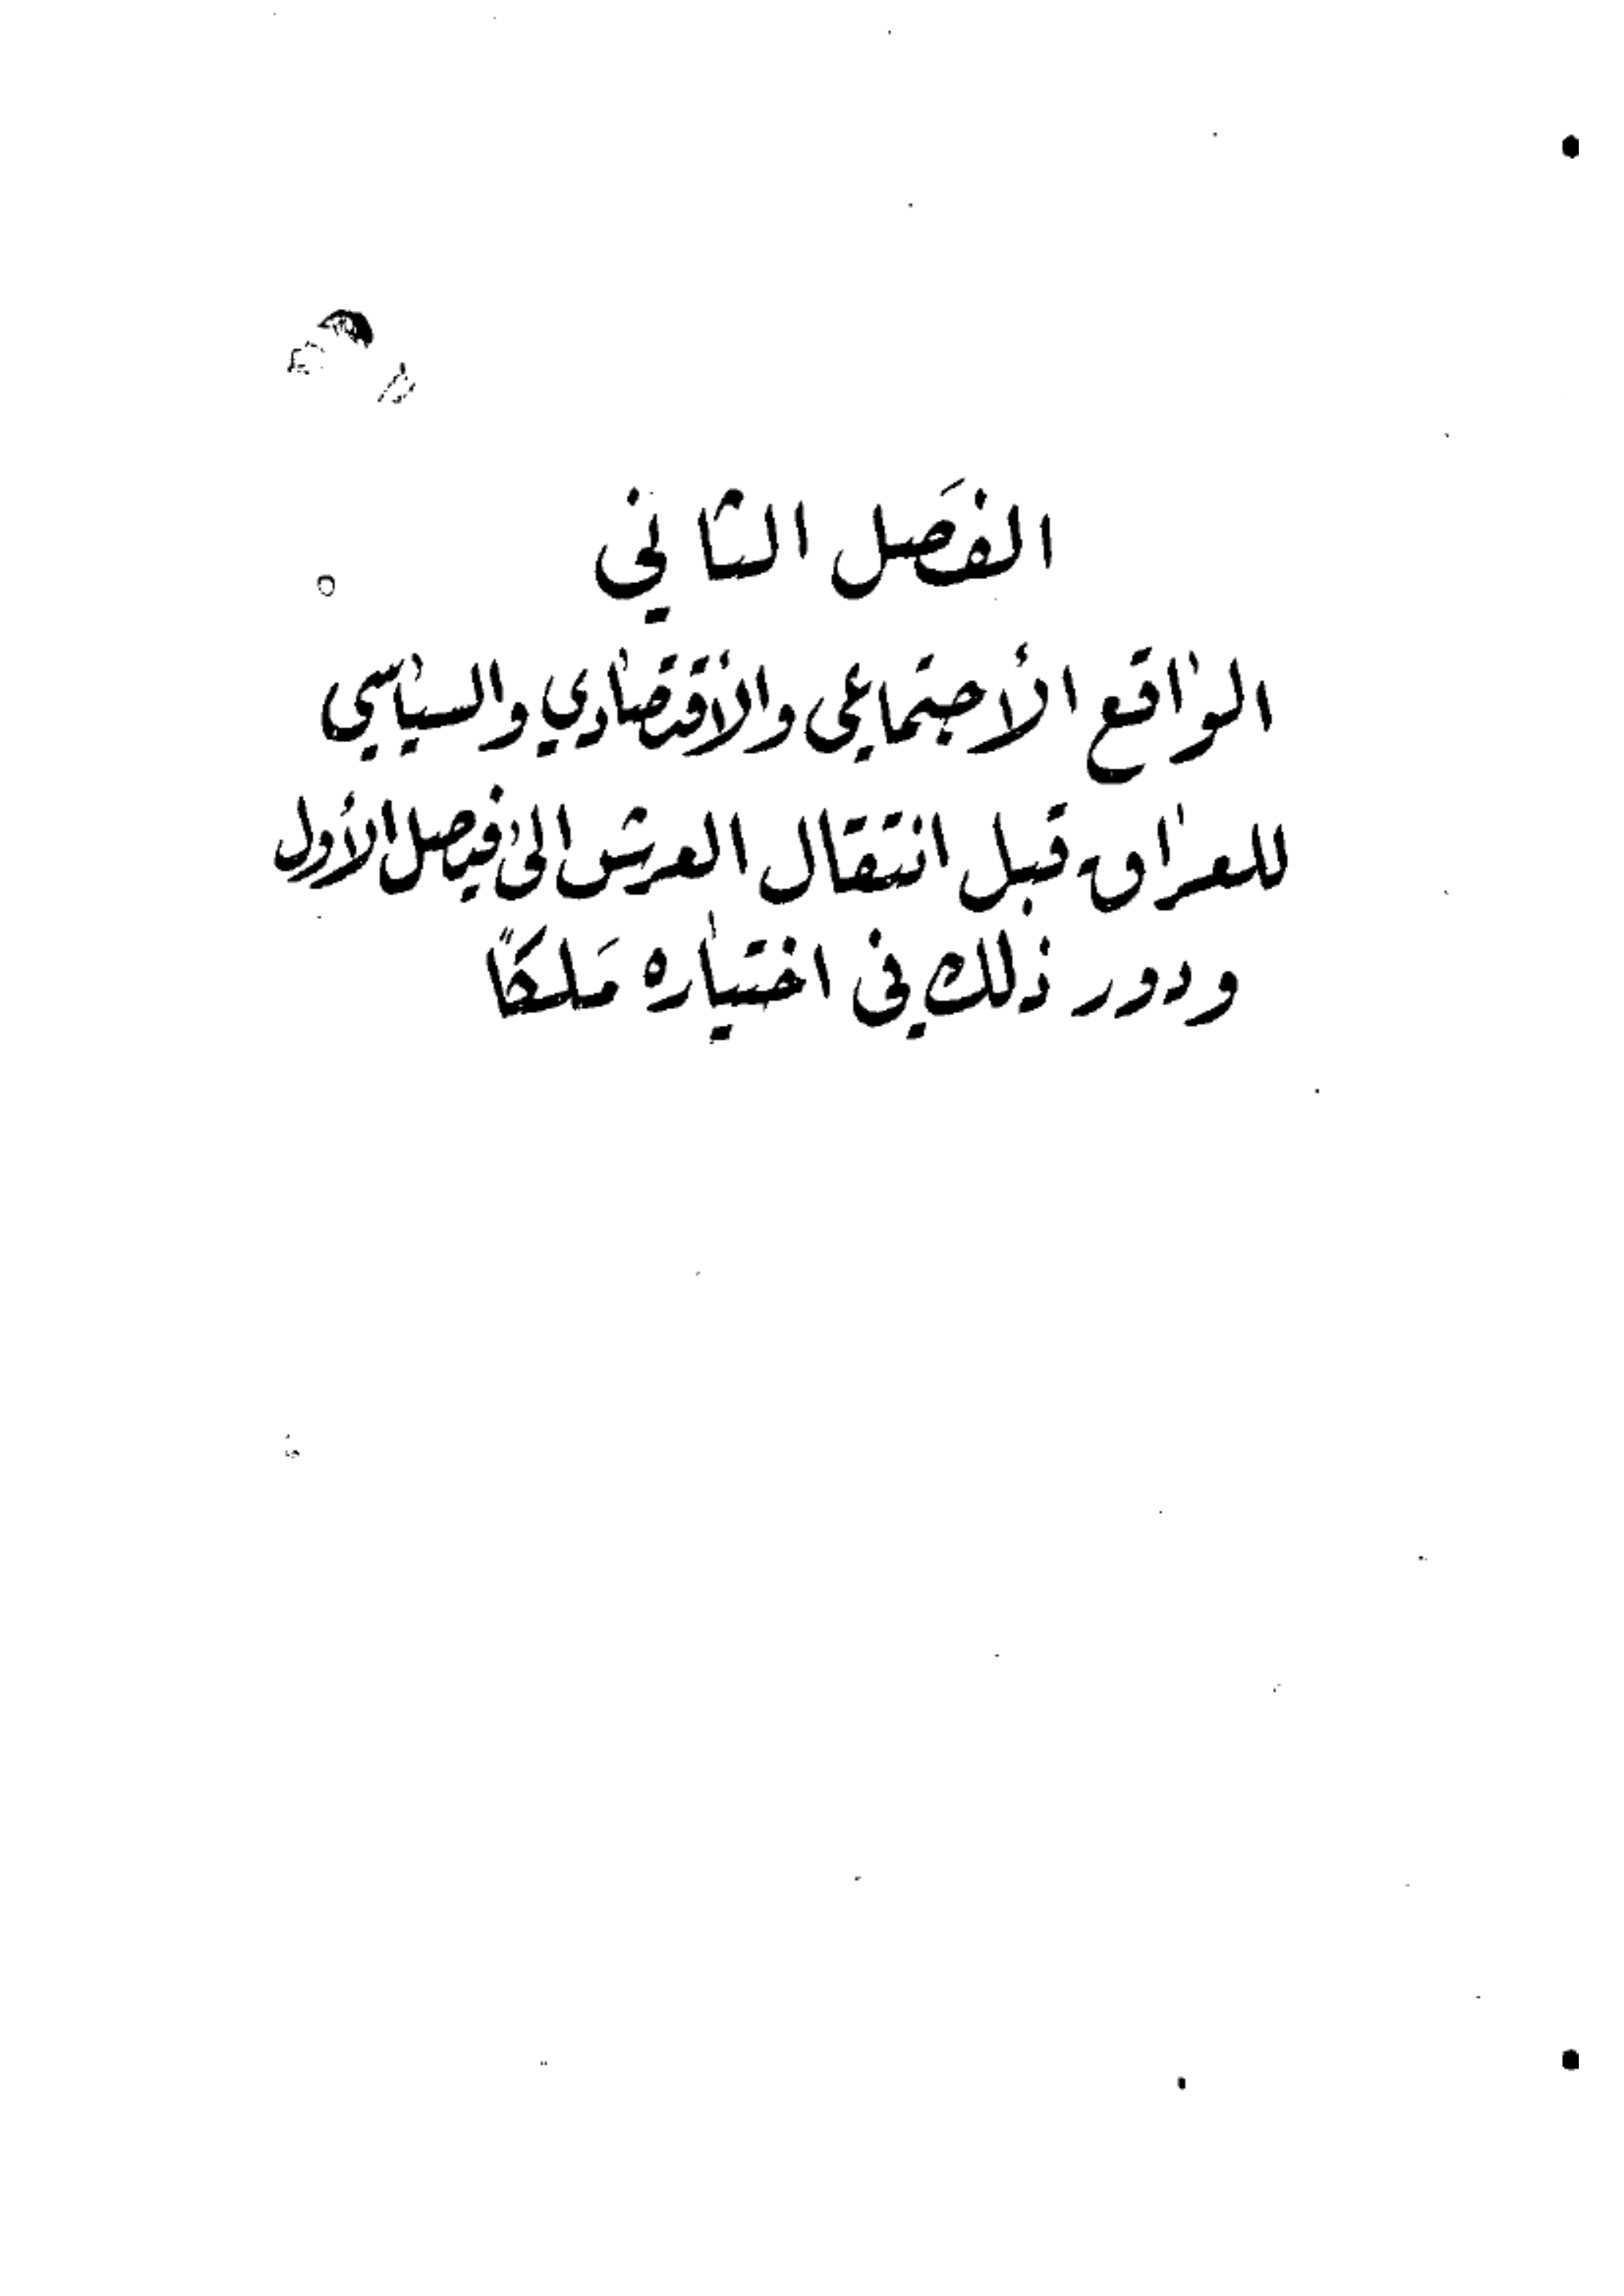 الفصَل الثاني
الواقع الأجتماعي والأقتصادي والسياسي
للعراق قبل انتقال العرش الى فيصل الأول
ودور ذلك في اختياره مَلكاً